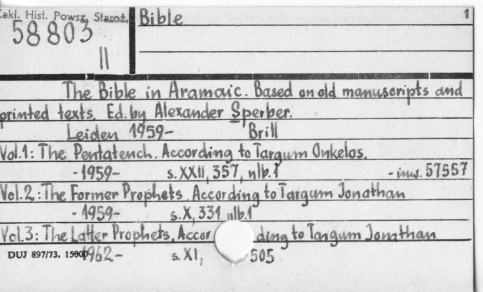 Zakł. Hist. Powsz. Staroż. Bible 1
58803
II
The Bible in Aramaic. Based on old manuscripts and
printed texts. Ed. by Alexander Sperber.
Leiden 1959- Brill
Vol.1: The Pentateuch. According to Targum Onkelos.
- 1959- s. XXII, 357, nlb.1 - inw. 57557
Vol.2: The Former Prophets. According to Targum Jonathan
- 1959- s. X, 331 nlb.1
Vol.3: The Latter Prophets. According to Targum Jonathan
DUJ 897/73. 15000 1962- s. XI, 505